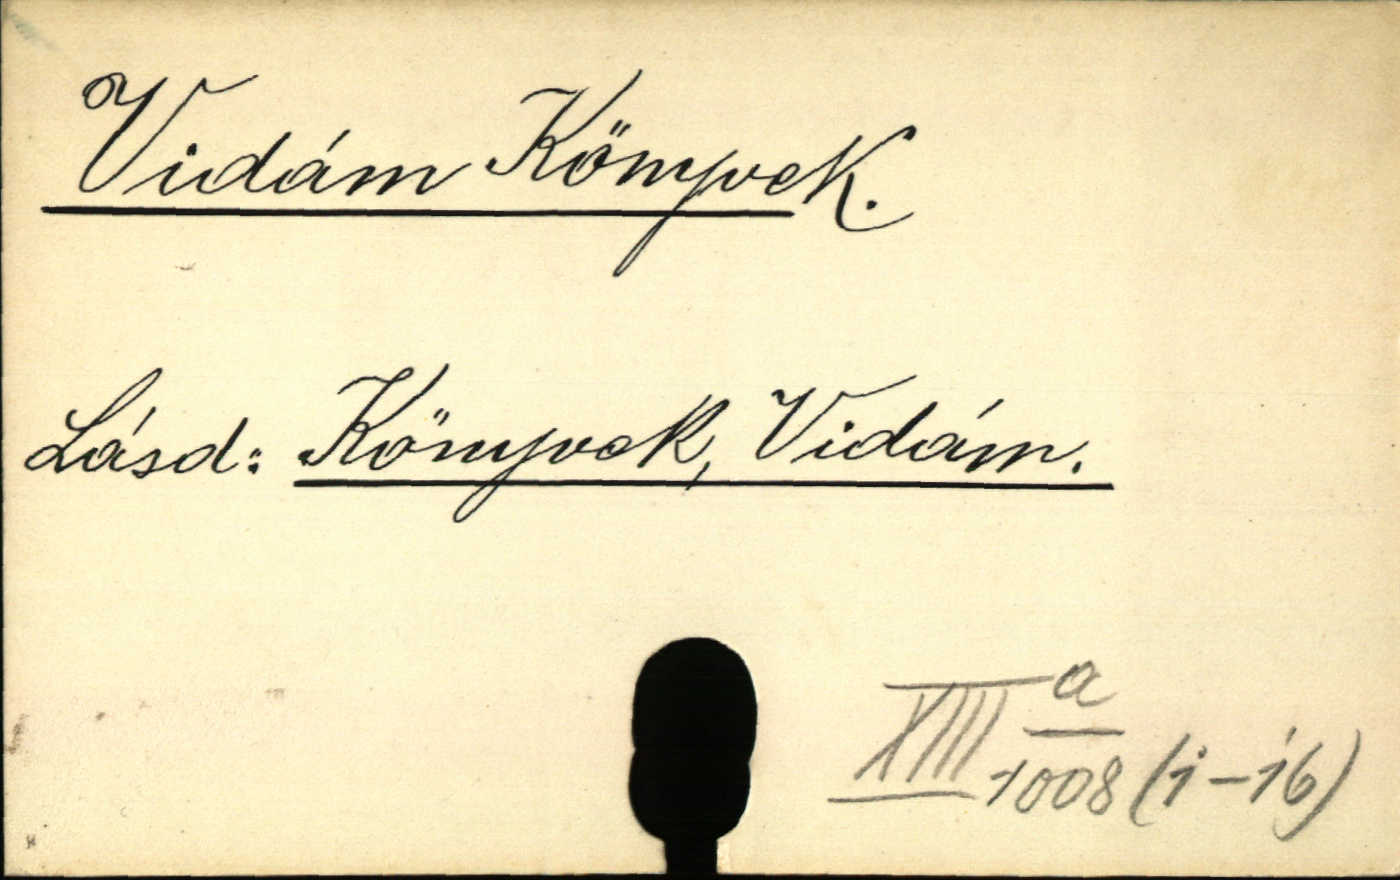 Vidám Könyvek.
Lásd: Könyvek, Vidám.
XIII a/1008 (i-i6)